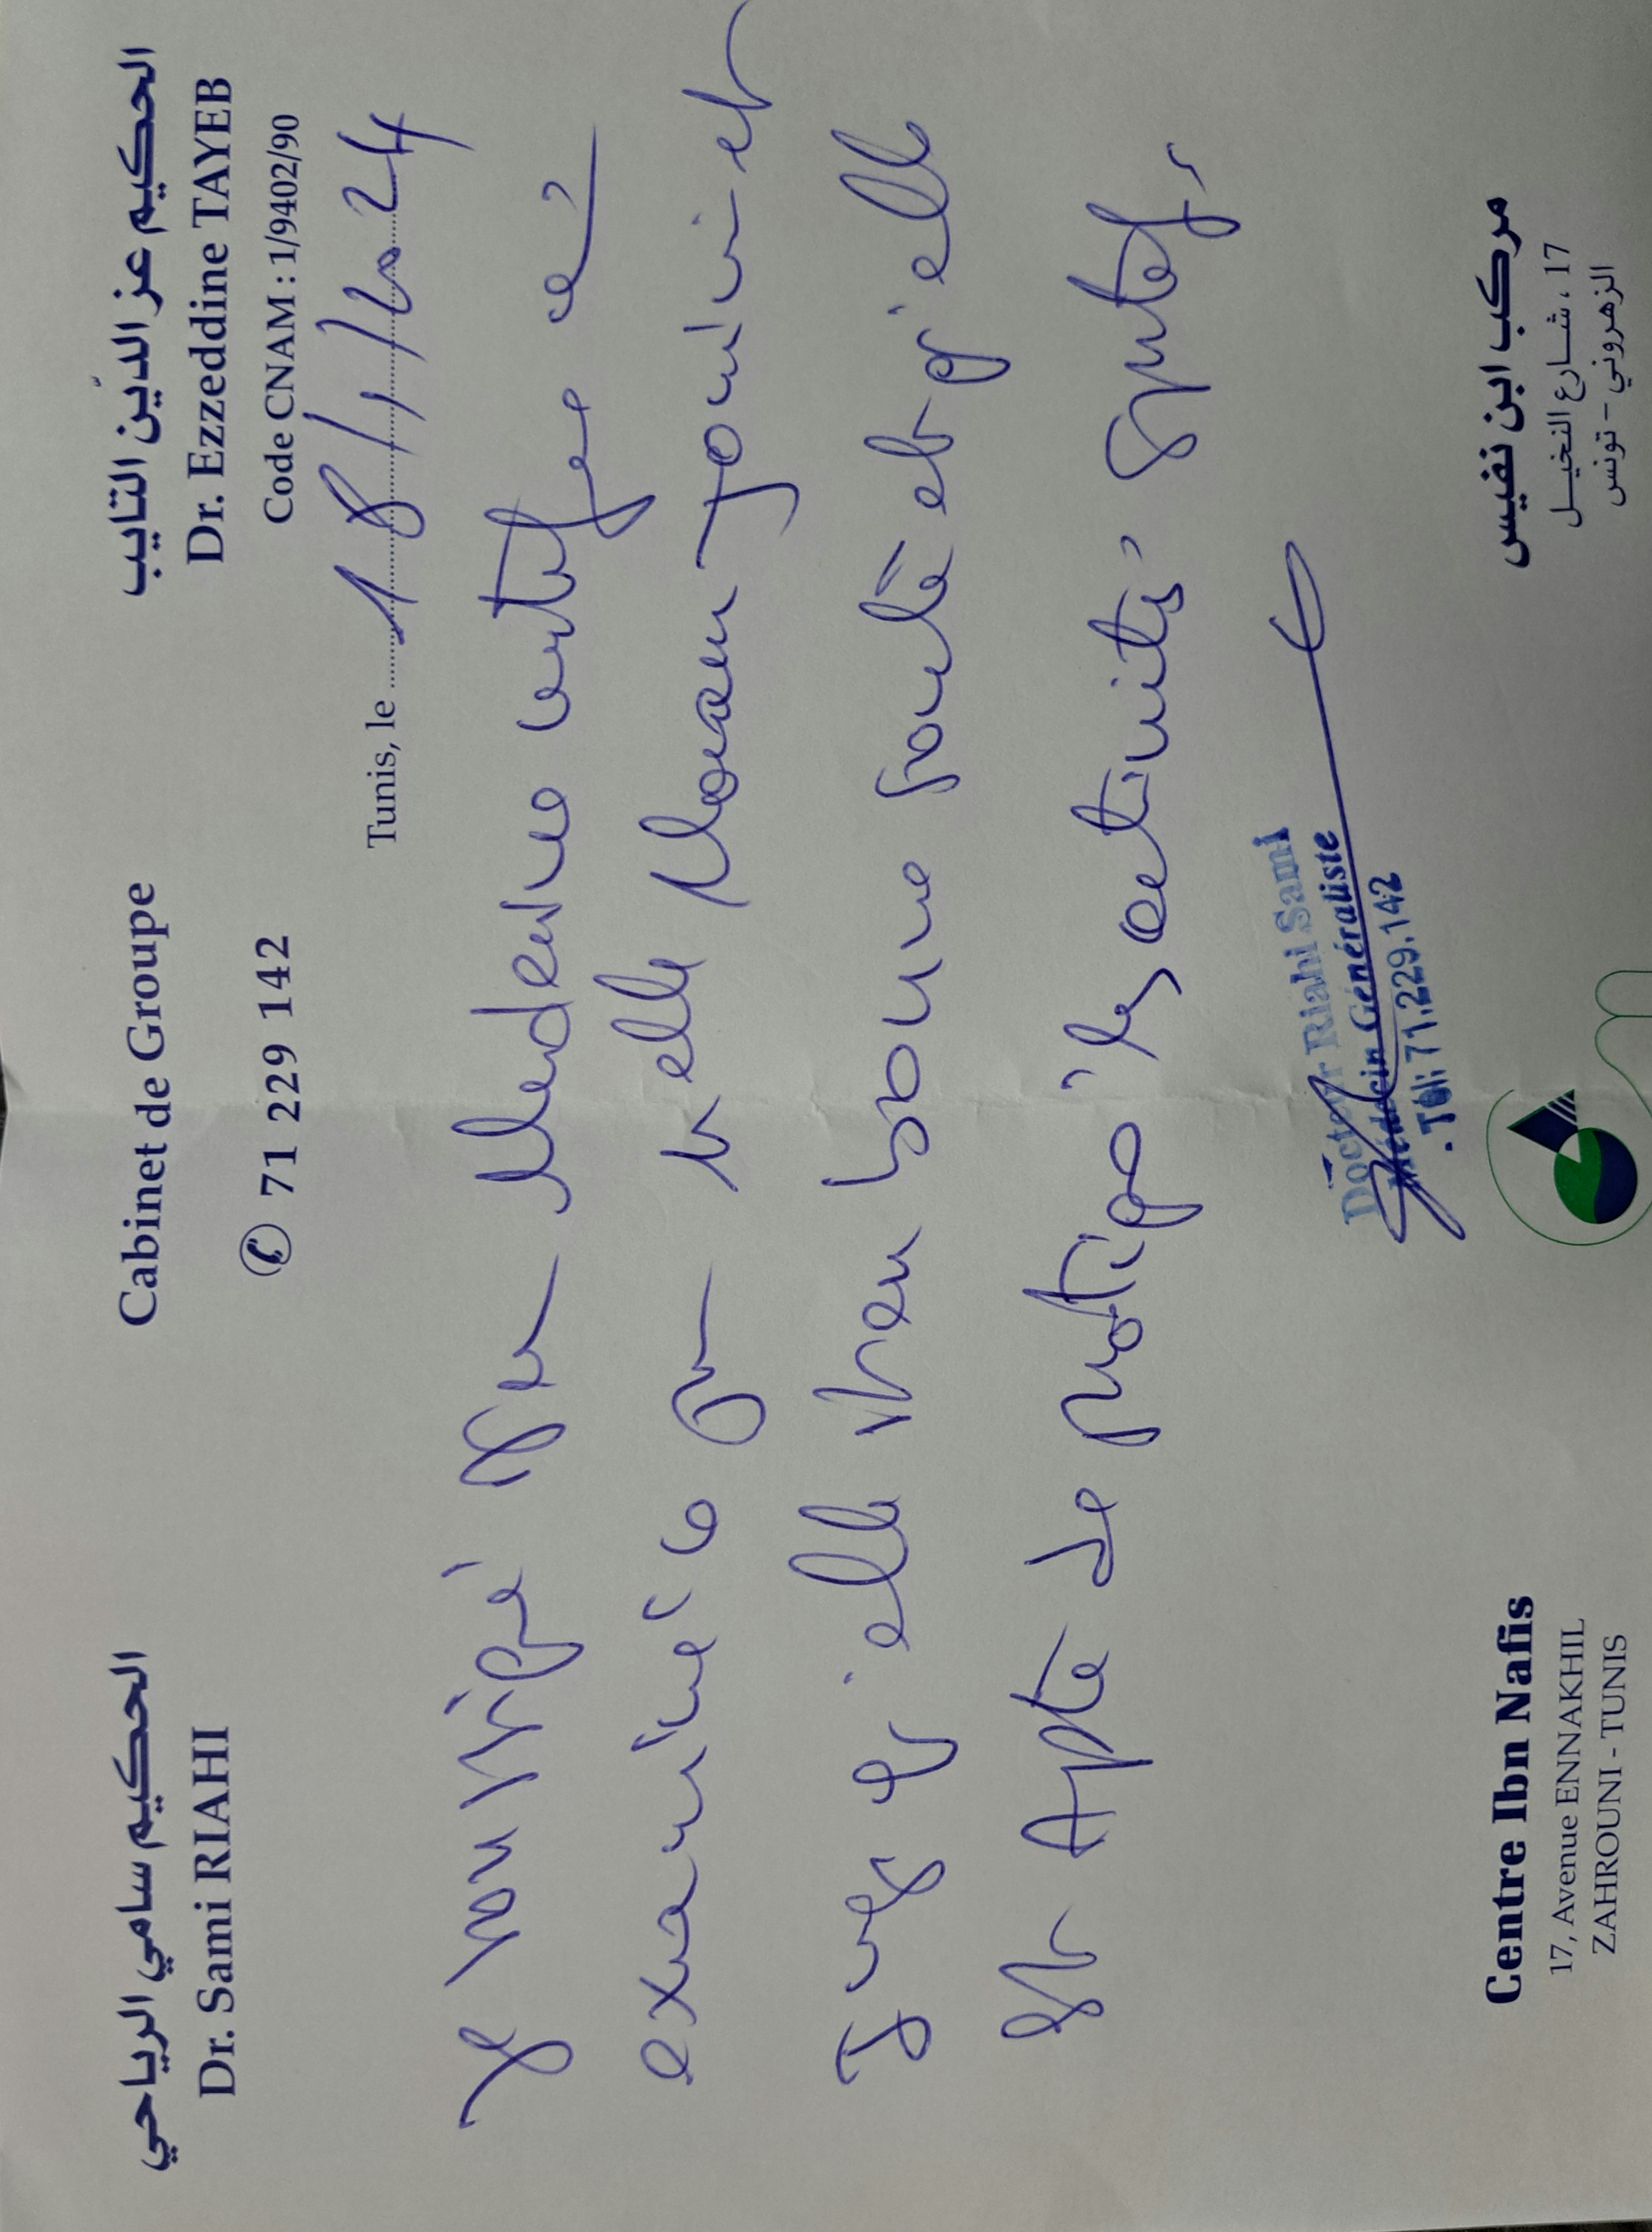 الحكيم سامي الرياحي
Dr. Sami RIAHI
Cabinet de Groupe
✆ 71 229 142
الحكيم عز الدّين التايب
Dr. Ezzeddine TAYEB
Code CNAM : 1/9402/90
Tunis, le 18/1/2024
Je soussigné Medecine certifie
examiné ce elle
elle bonne santé et elle
est Apte de pratiquer les activités
Docteur Riahi Sami
Médecin Généraliste
Tél: 71.229.142
Centre Ibn Nafis
17, Avenue ENNAKHIL
ZAHROUNI - TUNIS
مركب ابن نفيس
17 ، شارع النخيل
الزهروني - تونس